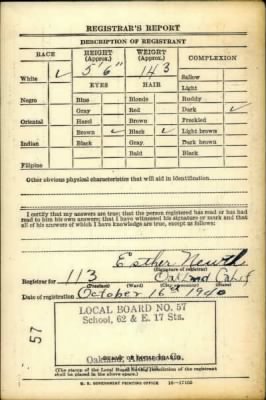 REGISTRAR'S REPORT
DESCRIPTION OF REGISTRANT
RACE HEIGHT (Approx.) WEIGHT (Approx.) COMPLEXION
White ✓ 5' 6" 143 Sallow
EYES HAIR Light
Negro Blue Blonde Ruddy
Gray Red Dark ✓
Oriental Hazel Brown Freckled
Brown ✓ Black ✓ Light brown
Indian Black Gray Dark brown
Bald Black
Filipino
Other obvious physical characteristics that will aid in identification
I certify that my answers are true; that the person registered has read or has had
read to him his own answers; that I have witnessed his signature or mark and that
all of his answers of which I have knowledge are true, except as follows:
Esther
(Signature of registrar)
Registrar for 113 Oakland Calif
(Precinct) (Ward) (City or county) (State)
Date of registration October 16th 1940
LOCAL BOARD NO. 57
School, 62 & E. 17 Sts.
57
Oakland,
(The stamp of the Local Board having jurisdiction of the registrant
shall be placed in the above space.)
U. S. GOVERNMENT PRINTING OFFICE 16—17105